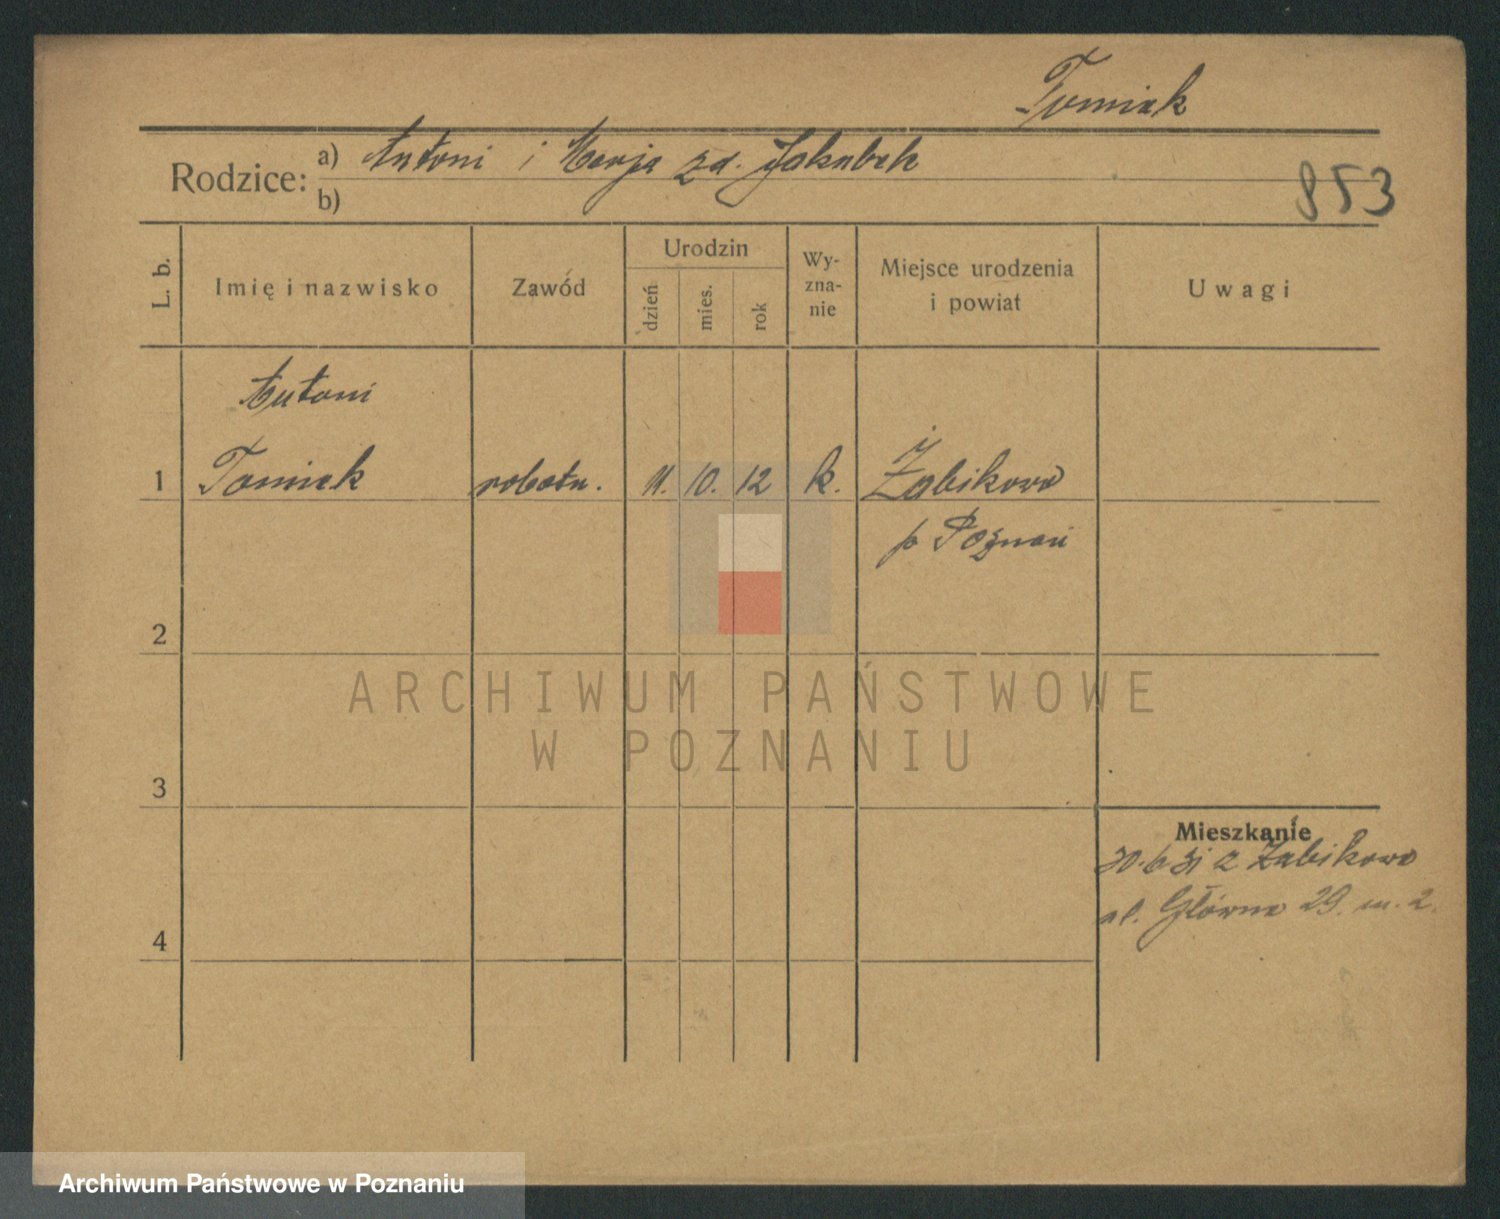 Tomiak
Rodzice: a) Antoni i Marja zd. Jakubek
b)
853
L. b.
Imię i nazwisko
Zawód
Urodzin
dzień
mies.
rok
Wy-
zna-
nie
Miejsce urodzenia
i powiat
Uwagi
Antoni
1 Tomiak robotn. 11. 10. 12 k. Żabikowo
p Poznań
2
3
4
Mieszkanie
30.6 31 z Żabikowo
ul. Główna 29. m. 2.
ARCHIWUM PAŃSTWOWE
W POZNANIU
Archiwum Państwowe w Poznaniu